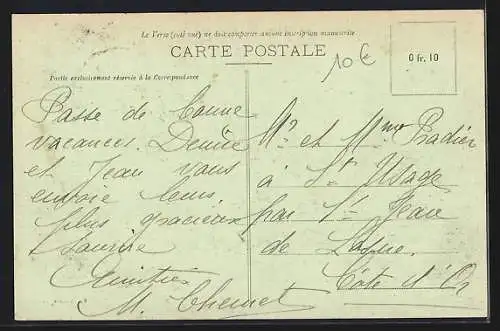 Le Verso (côté vue) ne doit comporter aucune inscription manuscrite
CARTE POSTALE
10€
0 fr. 10
Partie exclusivement réservée à la Correspondance
Passe de bonne
vacances. Denise
et Jean vous
envoie leurs
plus gracieux
sourire
Amitiés
M. Chemet
Mr et Mme Pradier
à St Usage
par St Jean
de Losne
Côte d'Or